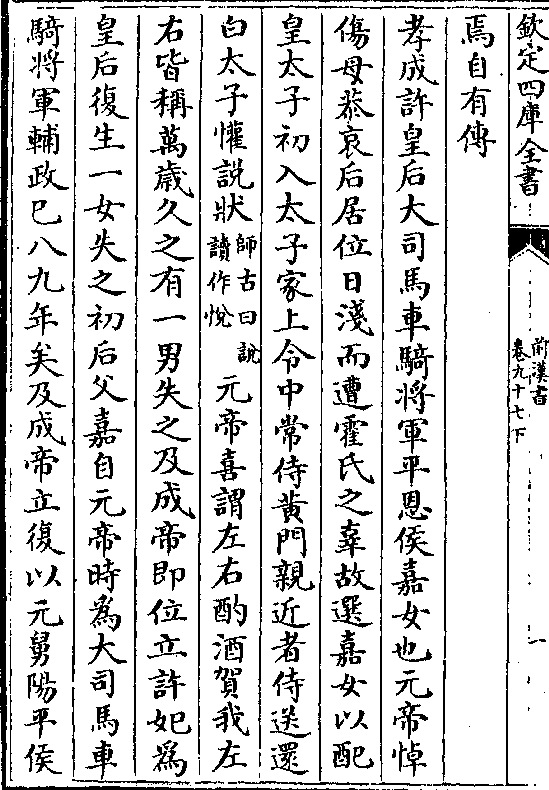 欽定四庫全書
前漢書
卷九十七下
一
焉自有傳
孝成許皇后大司馬車騎將軍平恩侯嘉女也元帝悼
傷母恭哀后居位日淺而遭霍氏之辜故選嘉女以配
皇太子初入太子家上令中常侍黄門親近者侍送還
白太子懽說狀師古曰說讀作悅元帝喜謂左右酌酒賀我左
右皆稱萬歲久之有一男失之及成帝即位立許妃為
皇后復生一女失之初后父嘉自元帝時為大司馬車
騎將軍輔政已八九年矣及成帝立復以元舅陽平侯